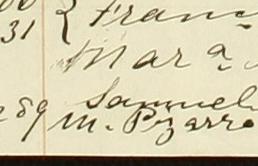 31 Franc
Mara
89 Samuel
M. Pizarro